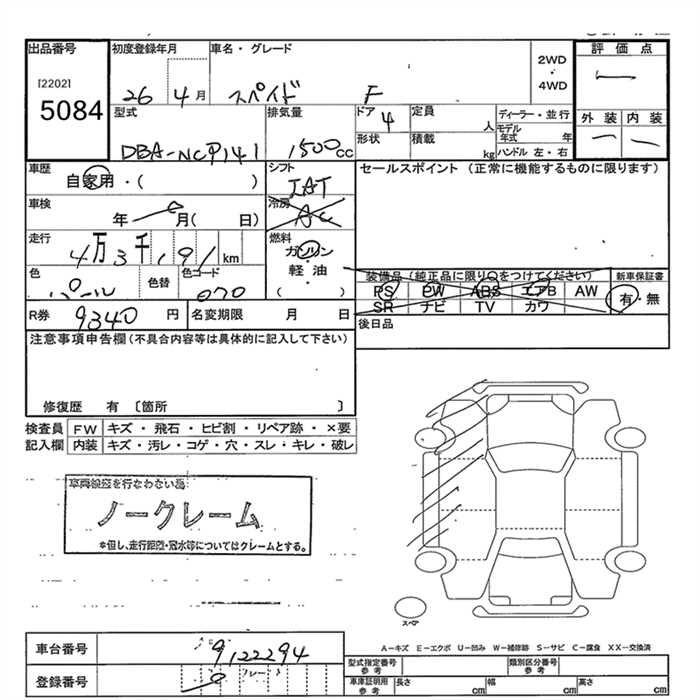 出品番号 初度登録年月 車名・グレード 2WD・4WD 評価点
[2202]
5084
26 4月 スペイド F 一
型式 排気量 ドア 4 定員 人 ディーラー・並行 外装 内装
DBA-NCP141 1500cc 形状 積載 kg モデル年式 年 ハンドル 左・右 一 一
車歴 シフト セールスポイント (正常に機能するものに限ります)
自家用・( ) IAT
車検 冷房
年 月( 日) AC
走行 燃料
4万3千191km ガソリン
色 色替 色コード 軽・油 装備品(純正品に限り○をつけてください) 新車保証書
パール 070 ( ) PS PW ABS エアB AW 有・無
SR ナビ TV カワ
R券 9340円 名変期限 月 日 後日品
注意事項申告欄(不具合内容等は具体的に記入して下さい)
修復歴 有 〔箇所 〕
検査員 FW キズ・飛石・ヒビ割・リペア跡・×要
記入欄 内装 キズ・汚レ・コゲ・穴・スレ・キレ・破レ
ノークレーム
※但し、走行距離・冠水等についてはクレームとする。
スペア
A-キズ E-エクボ U-凹み W-補修跡 S-サビ C-腐食 XX-交換済
車台番号 9122294
登録番号
型式指定番号 参考 類別区分番号 参考
車庫証明用 参考 長さ cm 幅 cm 高さ cm